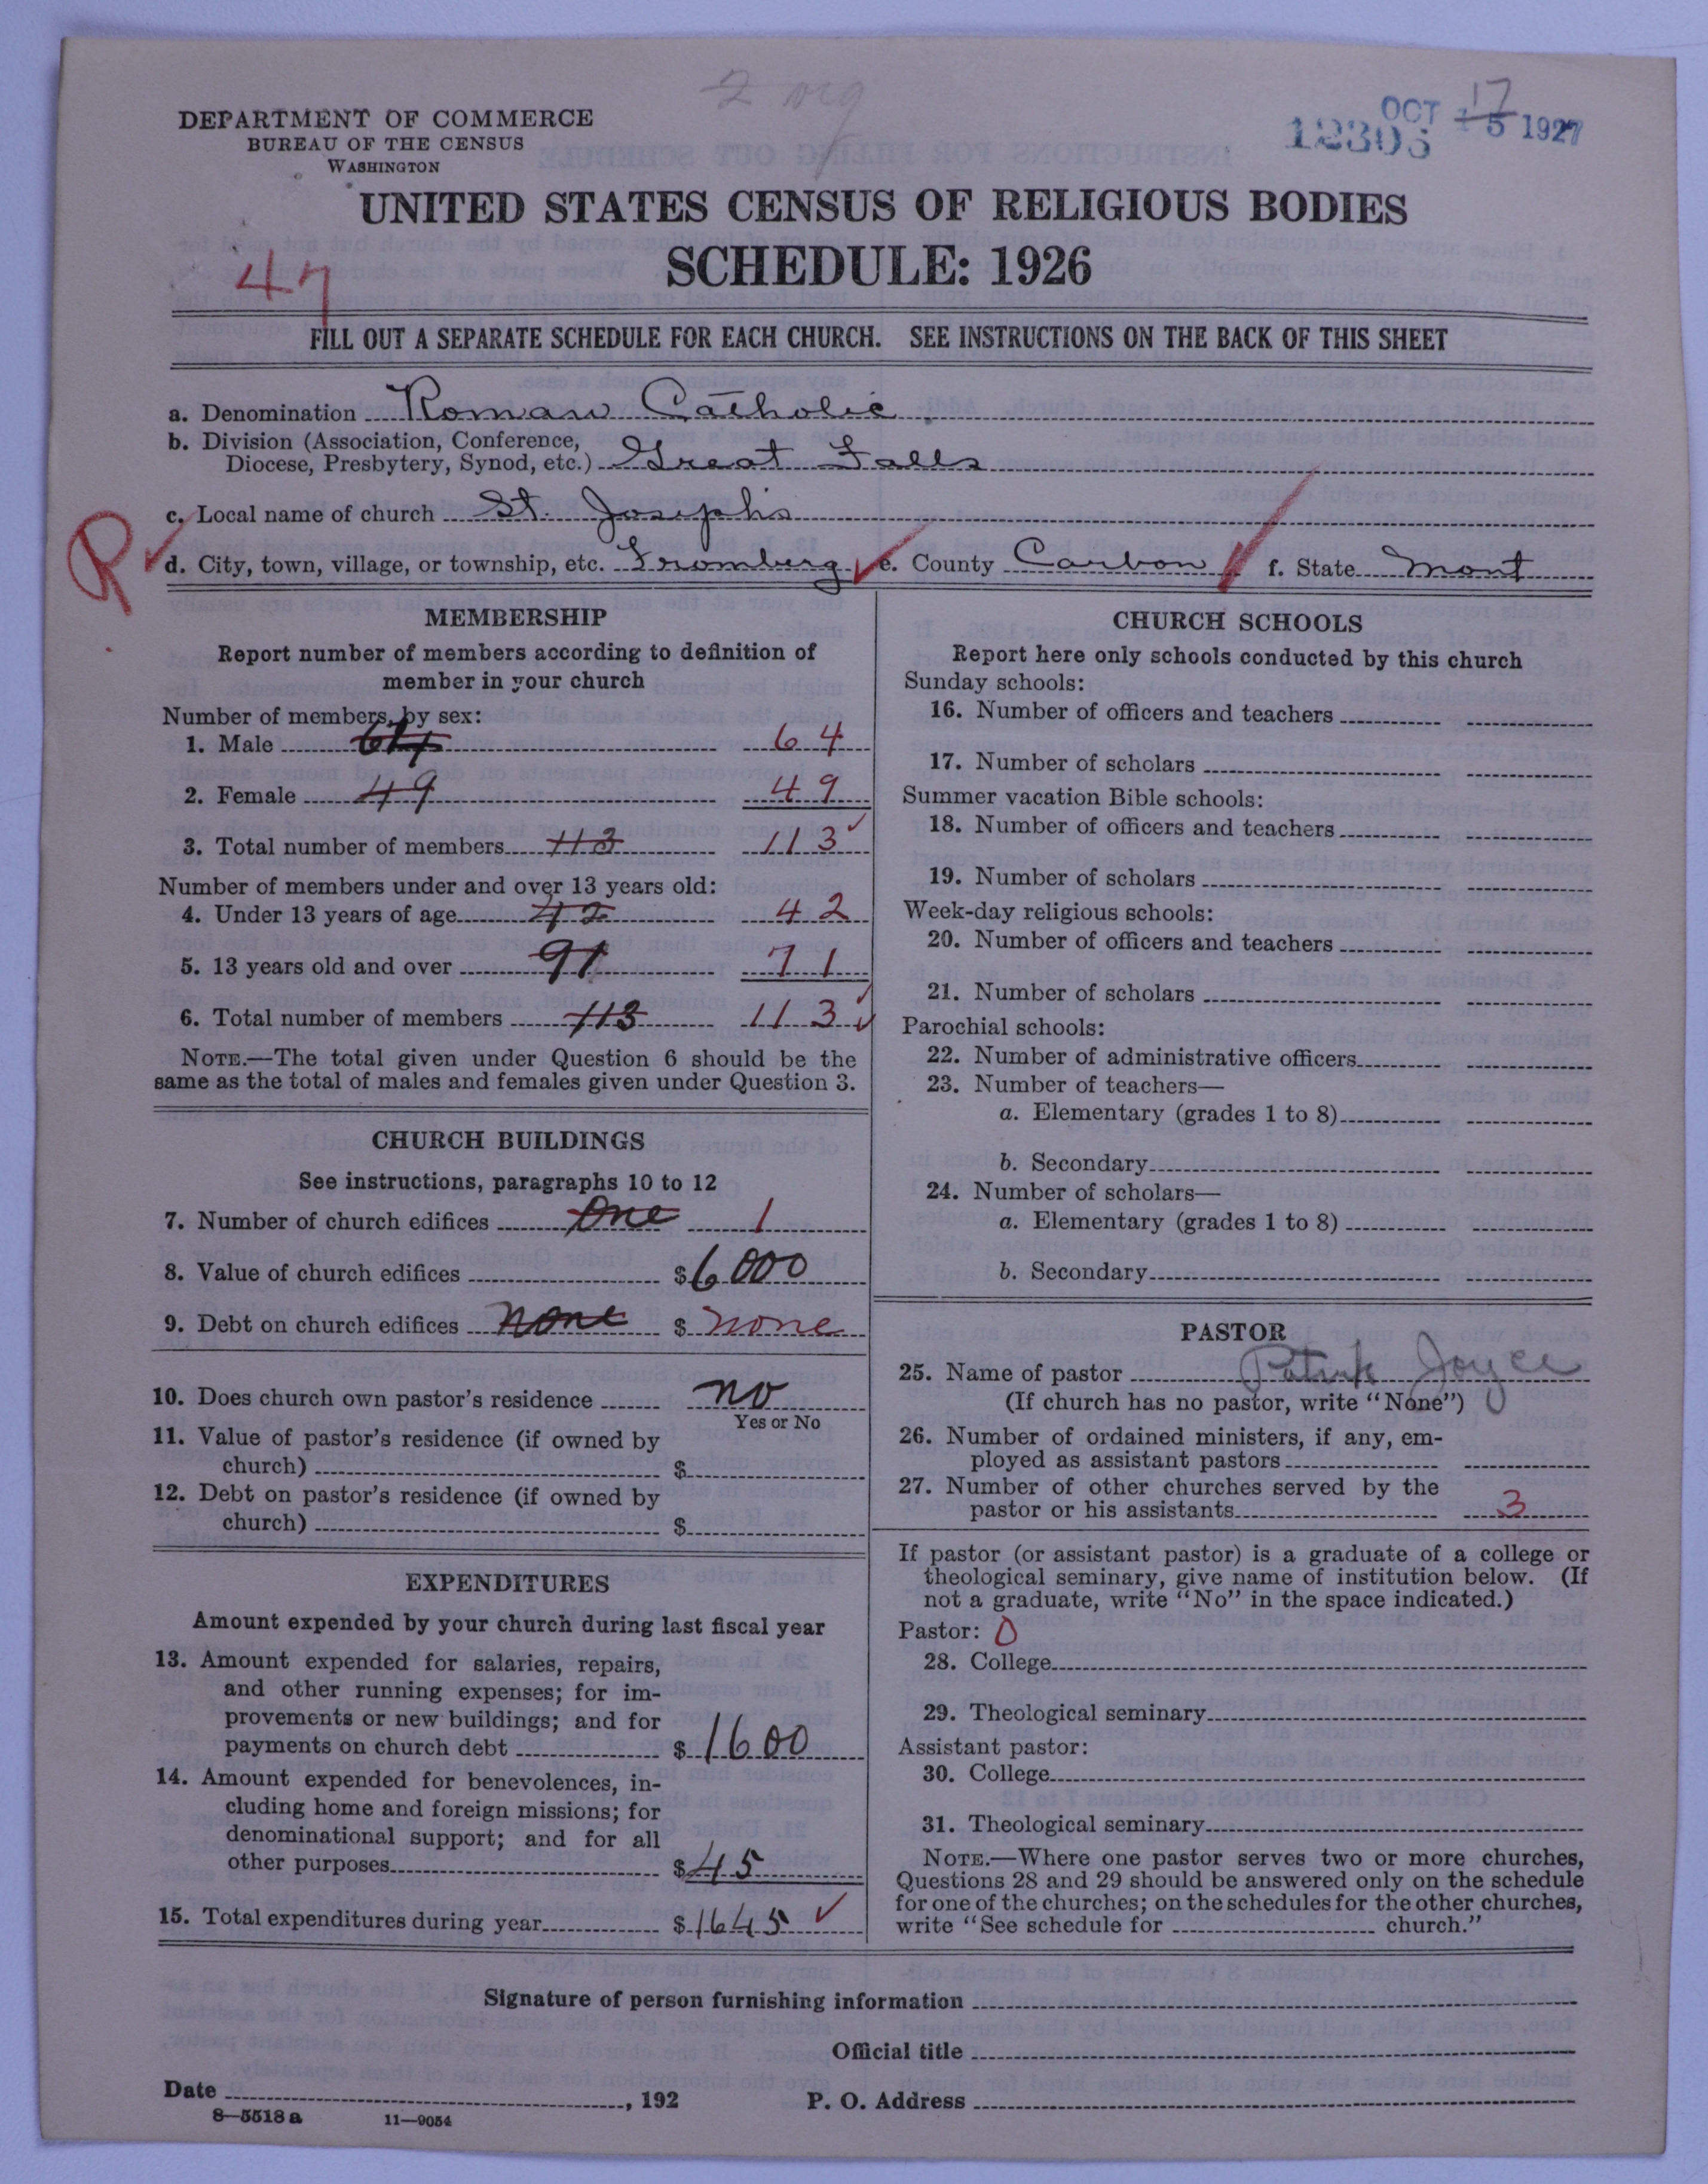 2 org
DEPARTMENT OF COMMERCE
BUREAU OF THE CENSUS
WASHINGTON
OCT 15 1927
17
12305
UNITED STATES CENSUS OF RELIGIOUS BODIES
SCHEDULE: 1926
47
FILL OUT A SEPARATE SCHEDULE FOR EACH CHURCH. SEE INSTRUCTIONS ON THE BACK OF THIS SHEET
a. Denomination Roman Catholic
b. Division (Association, Conference,
Diocese, Presbytery, Synod, etc.) Great Falls
c. Local name of church St. Josephs
R
d. City, town, village, or township, etc. Fromberg e. County Carbon f. State Mont
MEMBERSHIP
Report number of members according to definition of
member in your church
Number of members, by sex:
1. Male 64 64
2. Female 49 49
3. Total number of members 113 113
Number of members under and over 13 years old:
4. Under 13 years of age 42 42
5. 13 years old and over 91 71
6. Total number of members 113 113
NOTE.—The total given under Question 6 should be the
same as the total of males and females given under Question 3.
CHURCH BUILDINGS
See instructions, paragraphs 10 to 12
7. Number of church edifices One 1
8. Value of church edifices $6000
9. Debt on church edifices none $ none
10. Does church own pastor's residence no
Yes or No
11. Value of pastor's residence (if owned by
church) $
12. Debt on pastor's residence (if owned by
church) $
EXPENDITURES
Amount expended by your church during last fiscal year
13. Amount expended for salaries, repairs,
and other running expenses; for im-
provements or new buildings; and for
payments on church debt $1600
14. Amount expended for benevolences, in-
cluding home and foreign missions; for
denominational support; and for all
other purposes $45
15. Total expenditures during year $1645
CHURCH SCHOOLS
Report here only schools conducted by this church
Sunday schools:
16. Number of officers and teachers
17. Number of scholars
Summer vacation Bible schools:
18. Number of officers and teachers
19. Number of scholars
Week-day religious schools:
20. Number of officers and teachers
21. Number of scholars
Parochial schools:
22. Number of administrative officers
23. Number of teachers—
a. Elementary (grades 1 to 8)
b. Secondary
24. Number of scholars—
a. Elementary (grades 1 to 8)
b. Secondary
PASTOR
25. Name of pastor Patrick Joyce
(If church has no pastor, write "None")
26. Number of ordained ministers, if any, em-
ployed as assistant pastors
27. Number of other churches served by the
pastor or his assistants 3
If pastor (or assistant pastor) is a graduate of a college or
theological seminary, give name of institution below. (If
not a graduate, write "No" in the space indicated.)
Pastor: 0
28. College
29. Theological seminary
Assistant pastor:
30. College
31. Theological seminary
NOTE.—Where one pastor serves two or more churches,
Questions 28 and 29 should be answered only on the schedule
for one of the churches; on the schedules for the other churches,
write "See schedule for church."
Signature of person furnishing information
Official title
Date , 192 P. O. Address
8—5518 a 11—9054